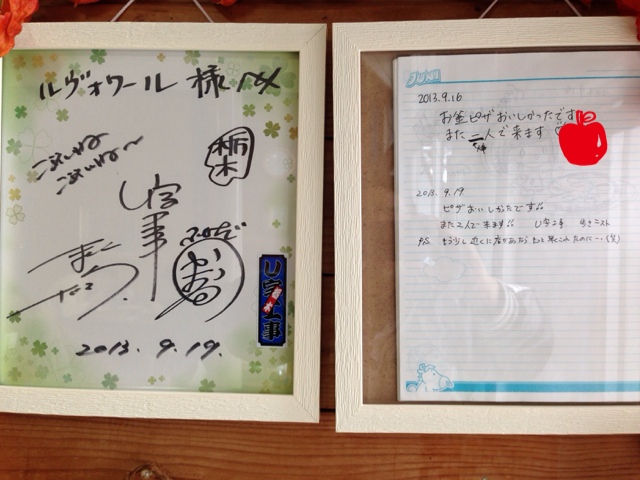 ルヴォワール 様
ごめんね
ごめんね〜
栃木
U字
工事
U字工事
2013. 9. 19.
2013. 9. 16
お釜ピザおいしかったです
また二人で来ます
2013. 9. 19
ピザおいしかったです!!
また2人で来ます!! U字工事
P.S. もう少し近くに店があったらもっと早くこれたのに…(笑)